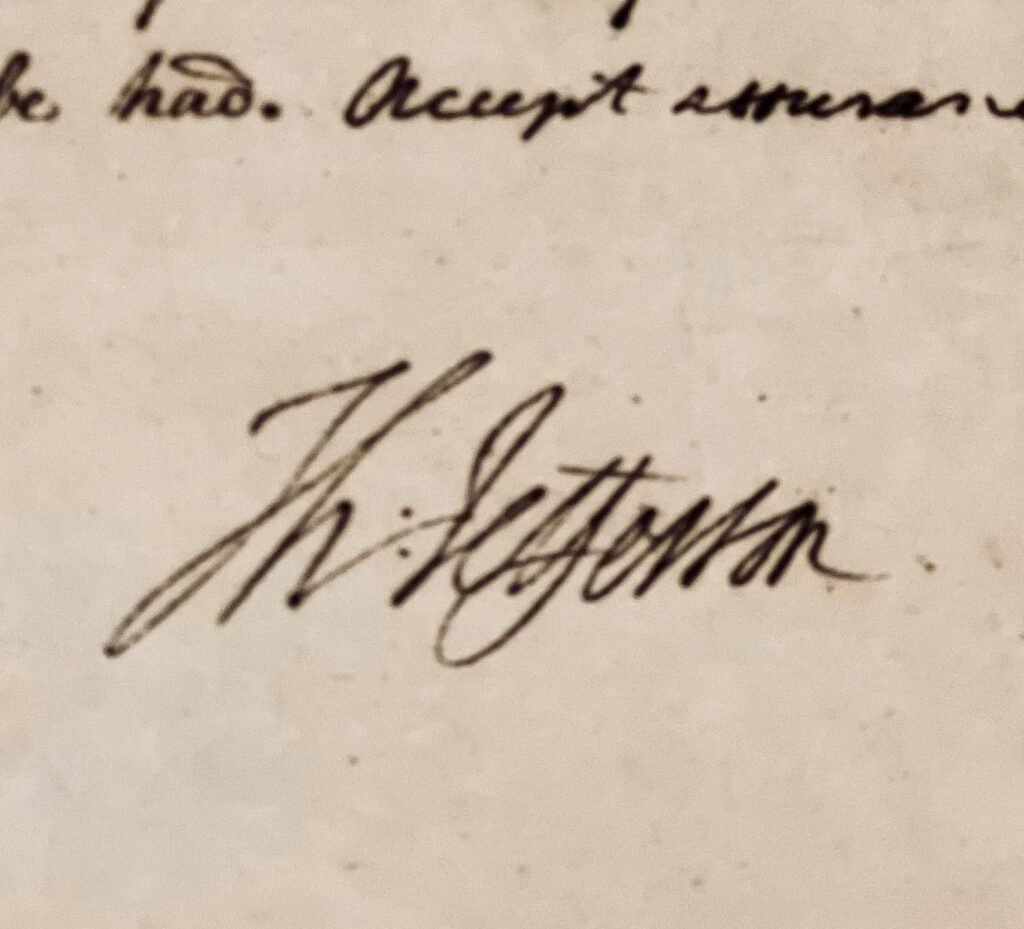 be had. Accept assuran
Th: Jefferson